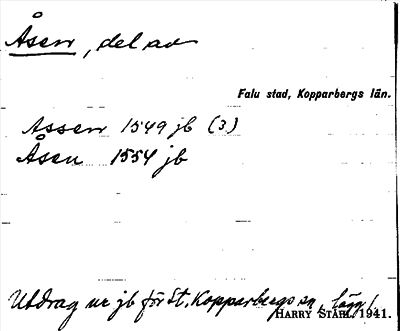 Åsen, del av
Falu stad, Kopparbergs län.
Assen 1549 jb (3)
Åsen 1554 jb
Utdrag ur jb för St. Kopparbergs sn,
HARRY STÅHL 1941.